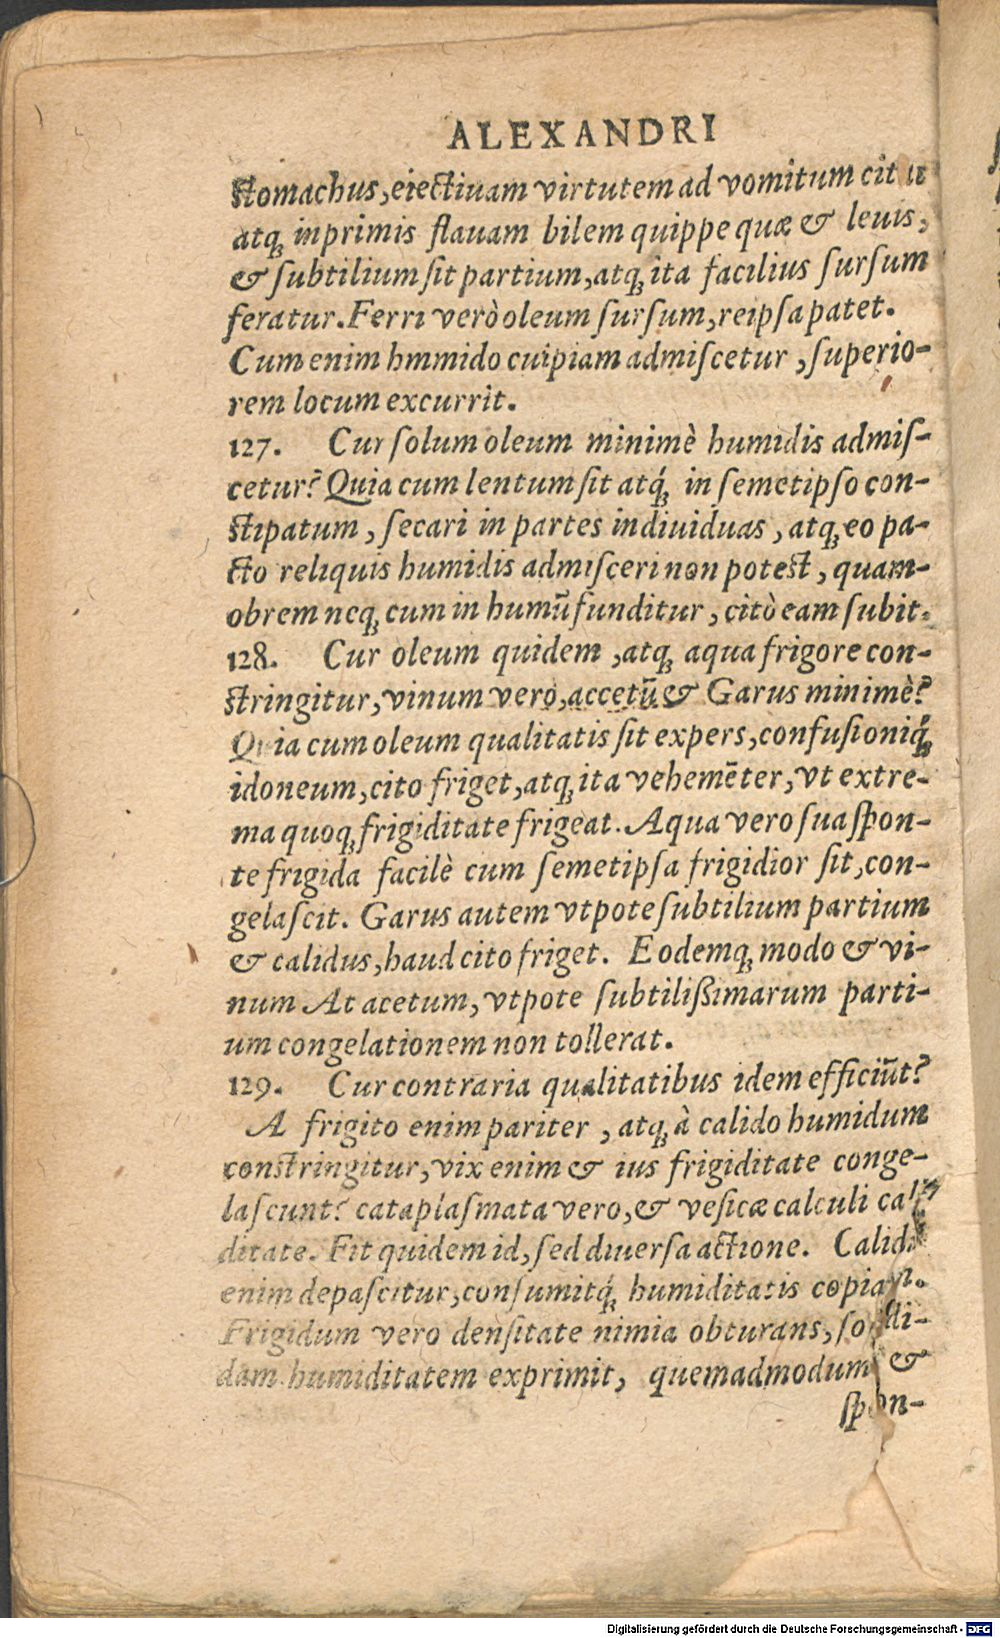 ALEXANDRI
stomachus, eiectiuam virtutem ad vomitum
atq; inprimis flauam bilem quippe quæ & leuis,
& subtilium sit partium, atq; ita facilius sursum
feratur. Ferri verò oleum sursum, reipsa patet.
Cum enim hmmido cuipiam admiscetur, superio-
rem locum excurrit.
127. Cur solum oleum minimè humidis admis-
cetur? Quia cum lentum sit atq́; in semetipso con-
stipatum, secari in partes indiuiduas, atq; eo pa-
cto reliquis humidis admisceri non potest, quam-
obrem neq; cum in humū funditur, citò eam subit.
128. Cur oleum quidem, atq; aqua frigore con-
stringitur, vinum vero, accetū & Garus minimè?
Quia cum oleum qualitatis sit expers, confusioniq́;
idoneum, cito friget, atq; ita vehemēter, vt extre-
ma quoq; frigiditate frigeat. Aqua vero sua spon-
te frigida facilè cum semetipsa frigidior sit, con-
gelascit. Garus autem vtpote subtilium partium
& calidus, haud cito friget. Eodemq; modo & vi-
num At acetum, vtpote subtilißimarum parti-
um congelationem non tollerat.
129. Cur contraria qualitatibus idem efficiūt?
A frigito enim pariter, atq; à calido humidum
constringitur, vix enim & ius frigiditate conge-
lascunt? cataplasmata vero, & vesicæ calculi cali-
ditate. Fit quidem id, sed diuersa actione. Calidū
enim depascitur, consumitq́; humiditatis copiam.
Frigidum vero densitate nimia obturans, sordi-
dam humiditatem exprimit, quemadmodum &
spon-
Digitalisierung gefördert durch die Deutsche Forschungsgemeinschaft - DFG